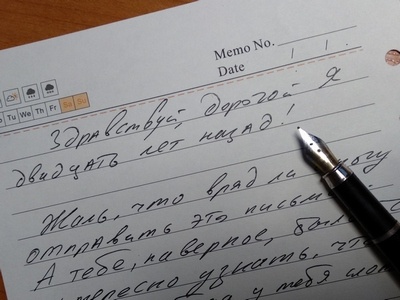 Memo No.
Date / /
Tu We Th Fr Sa Su
Здравствуй, дорогой Я
двадцать лет назад!
Жаль, что вряд ли могу
отправить это письмо.
А тебе, наверное, было
интересно узнать, что
у тебя